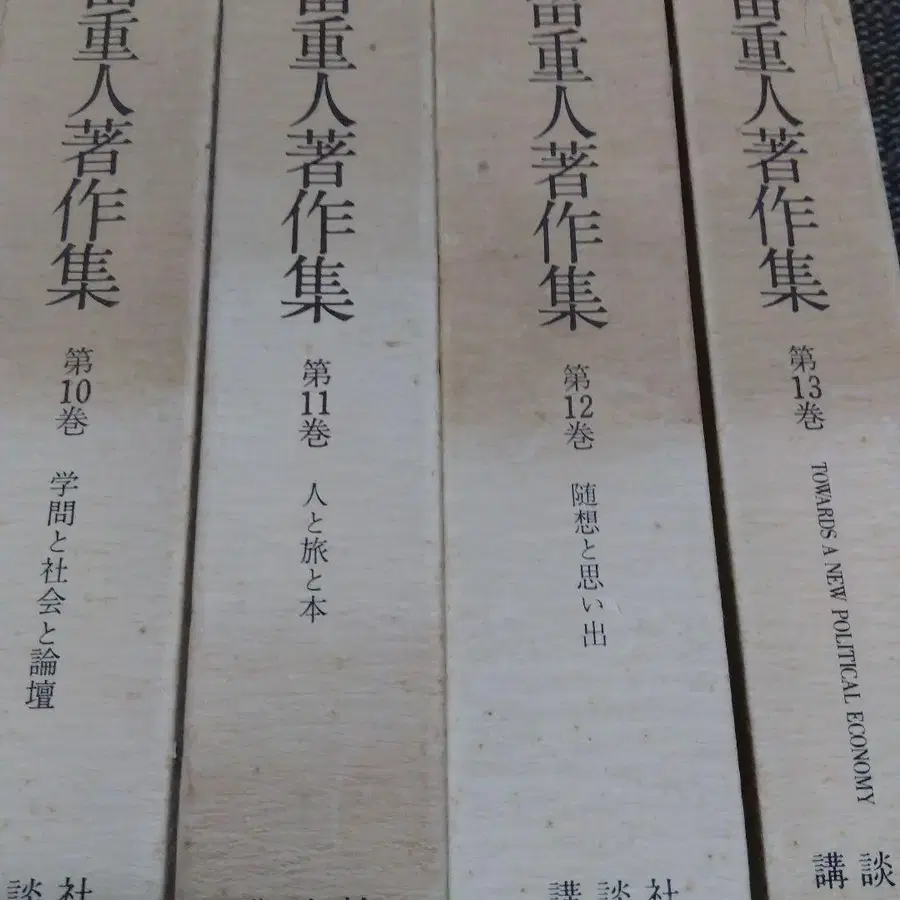 留重人著作集
第10巻
学問と社会と論壇
談社
留重人著作集
第11巻
人と旅と本
留重人著作集
第12巻
随想と思い出
講談社
留重人著作集
第13巻
TOWARDS A NEW POLITICAL ECONOMY
講談